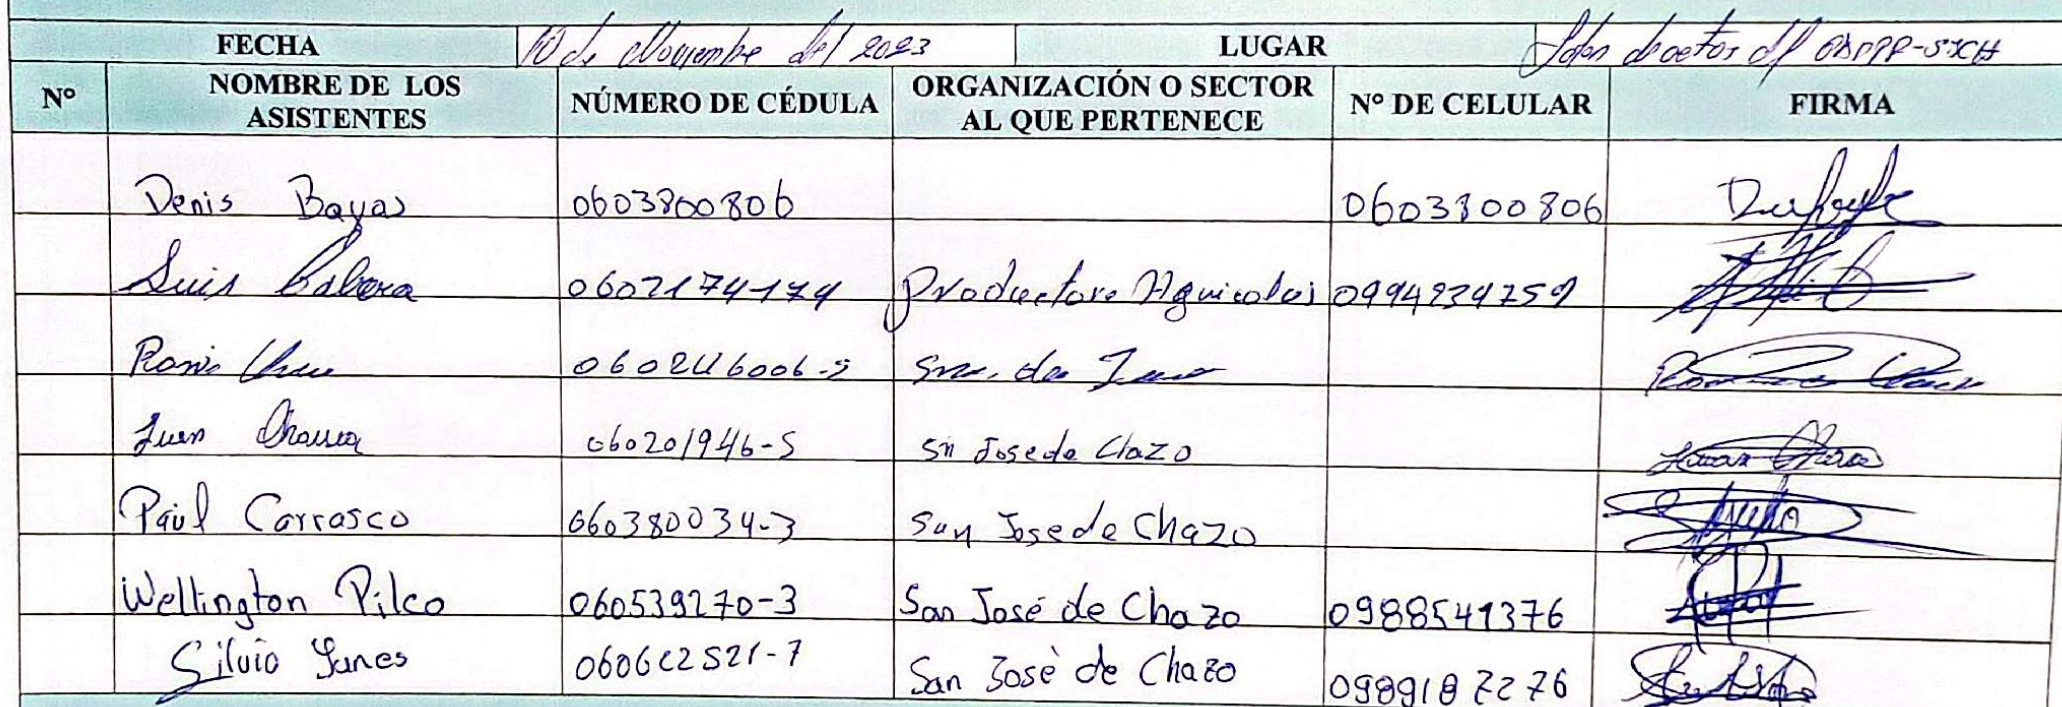 FECHA 10 de Noviembre del 2023 LUGAR Salon de actos del GADPR-SJCH
Nº NOMBRE DE LOS ASISTENTES NÚMERO DE CÉDULA ORGANIZACIÓN O SECTOR AL QUE PERTENECE Nº DE CELULAR FIRMA
Denis Bayas 0603800806 0603800806
Luis Cabera 060217417-4 Productore Agricolas 0994234759
060246006-5
Juan 060201946-5 Sn Jose de Chazo
Paúl Carrasco 060380034-3 San Jose de Chazo
Wellington Pilco 060539270-3 San José de Chazo 0988541376
Silvio Yanes 060602521-7 San José de Chazo 0989187276